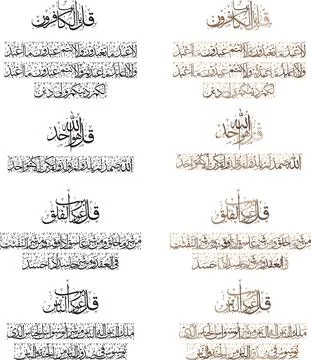 قل يا أيها الكافرون
لا أعبد ما تعبدون ولا أنتم عابدون ما أعبد
ولا أنا عابد ما عبدتم ولا أنتم عابدون ما أعبد
لكم دينكم ولي دين
قل هو الله أحد
الله الصمد لم يلد ولم يولد ولم يكن له كفوا أحد
قل أعوذ برب الفلق
من شر ما خلق ومن شر غاسق إذا وقب ومن شر النفاثات
في العقد ومن شر حاسد إذا حسد
قل أعوذ برب الناس
ملك الناس إله الناس من شر الوسواس الخناس الذي
يوسوس في صدور الناس من الجنة والناس
قل يا أيها الكافرون
لا أعبد ما تعبدون ولا أنتم عابدون ما أعبد
ولا أنا عابد ما عبدتم ولا أنتم عابدون ما أعبد
لكم دينكم ولي دين
قل هو الله أحد
الله الصمد لم يلد ولم يولد ولم يكن له كفوا أحد
قل أعوذ برب الفلق
من شر ما خلق ومن شر غاسق إذا وقب ومن شر النفاثات
في العقد ومن شر حاسد إذا حسد
قل أعوذ برب الناس
ملك الناس إله الناس من شر الوسواس الخناس الذي
يوسوس في صدور الناس من الجنة والناس